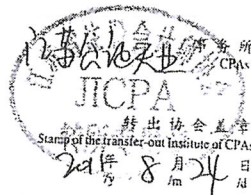 江苏公证天业 事务所
CPAs
JICPA
转出协会盖章
Stamp of the transfer-out Institute of CPAs
2011年 8月 24日
/y /m /d